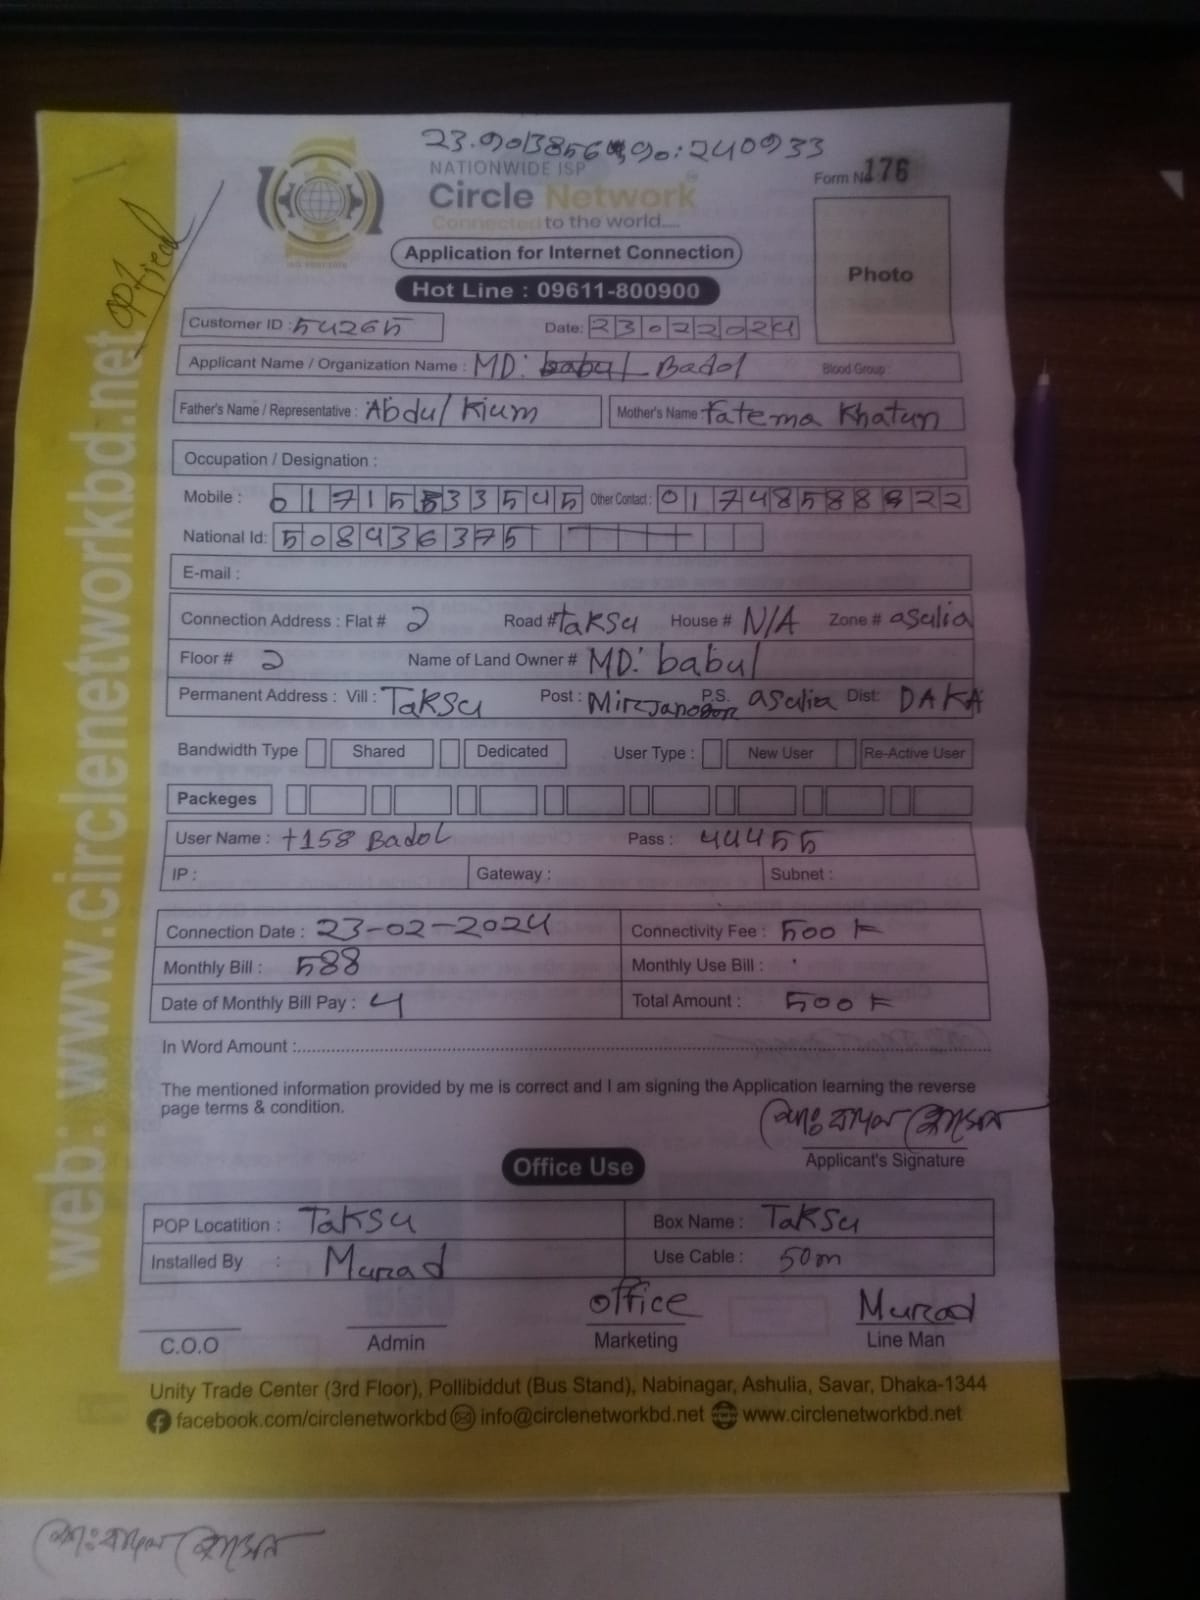 23.9013856, 90.240933
NATIONWIDE ISP
Circle Network
Connected to the world....
Form No 176
Application for Internet Connection
Photo
Hot Line : 09611-800900
Customer ID : 54265 Date: 23022024
Applicant Name / Organization Name : MD: babul Badol Blood Group :
Father's Name / Representative : Abdul Kium Mother's Name Fatema Khatun
Occupation / Designation :
Mobile : 01715533545 Other Contact : 01748588822
National Id: 508936375
E-mail :
Connection Address : Flat # 2 Road # Taksu House # N/A Zone # asulia
Floor # 2 Name of Land Owner # MD: babul
Permanent Address : Vill : Taksu Post : P.S. asulia Dist: DAKA
Bandwidth Type Shared Dedicated User Type : New User Re-Active User
Packeges
User Name : t158 Badol Pass : 44455
IP : Gateway : Subnet :
Connection Date : 23-02-2024 Connectivity Fee : 500
Monthly Bill : 588 Monthly Use Bill :
Date of Monthly Bill Pay : 4 Total Amount : 500
In Word Amount :
The mentioned information provided by me is correct and I am signing the Application learning the reverse
page terms & condition.
Applicant's Signature
Office Use
POP Locatition : Taksu Box Name : Taksu
Installed By : Murad Use Cable : 50m
office Murad
C.O.O Admin Marketing Line Man
Unity Trade Center (3rd Floor), Pollibiddut (Bus Stand), Nabinagar, Ashulia, Savar, Dhaka-1344
facebook.com/circlenetworkbd info@circlenetworkbd.net www.circlenetworkbd.net
web: www.circlenetworkbd.net